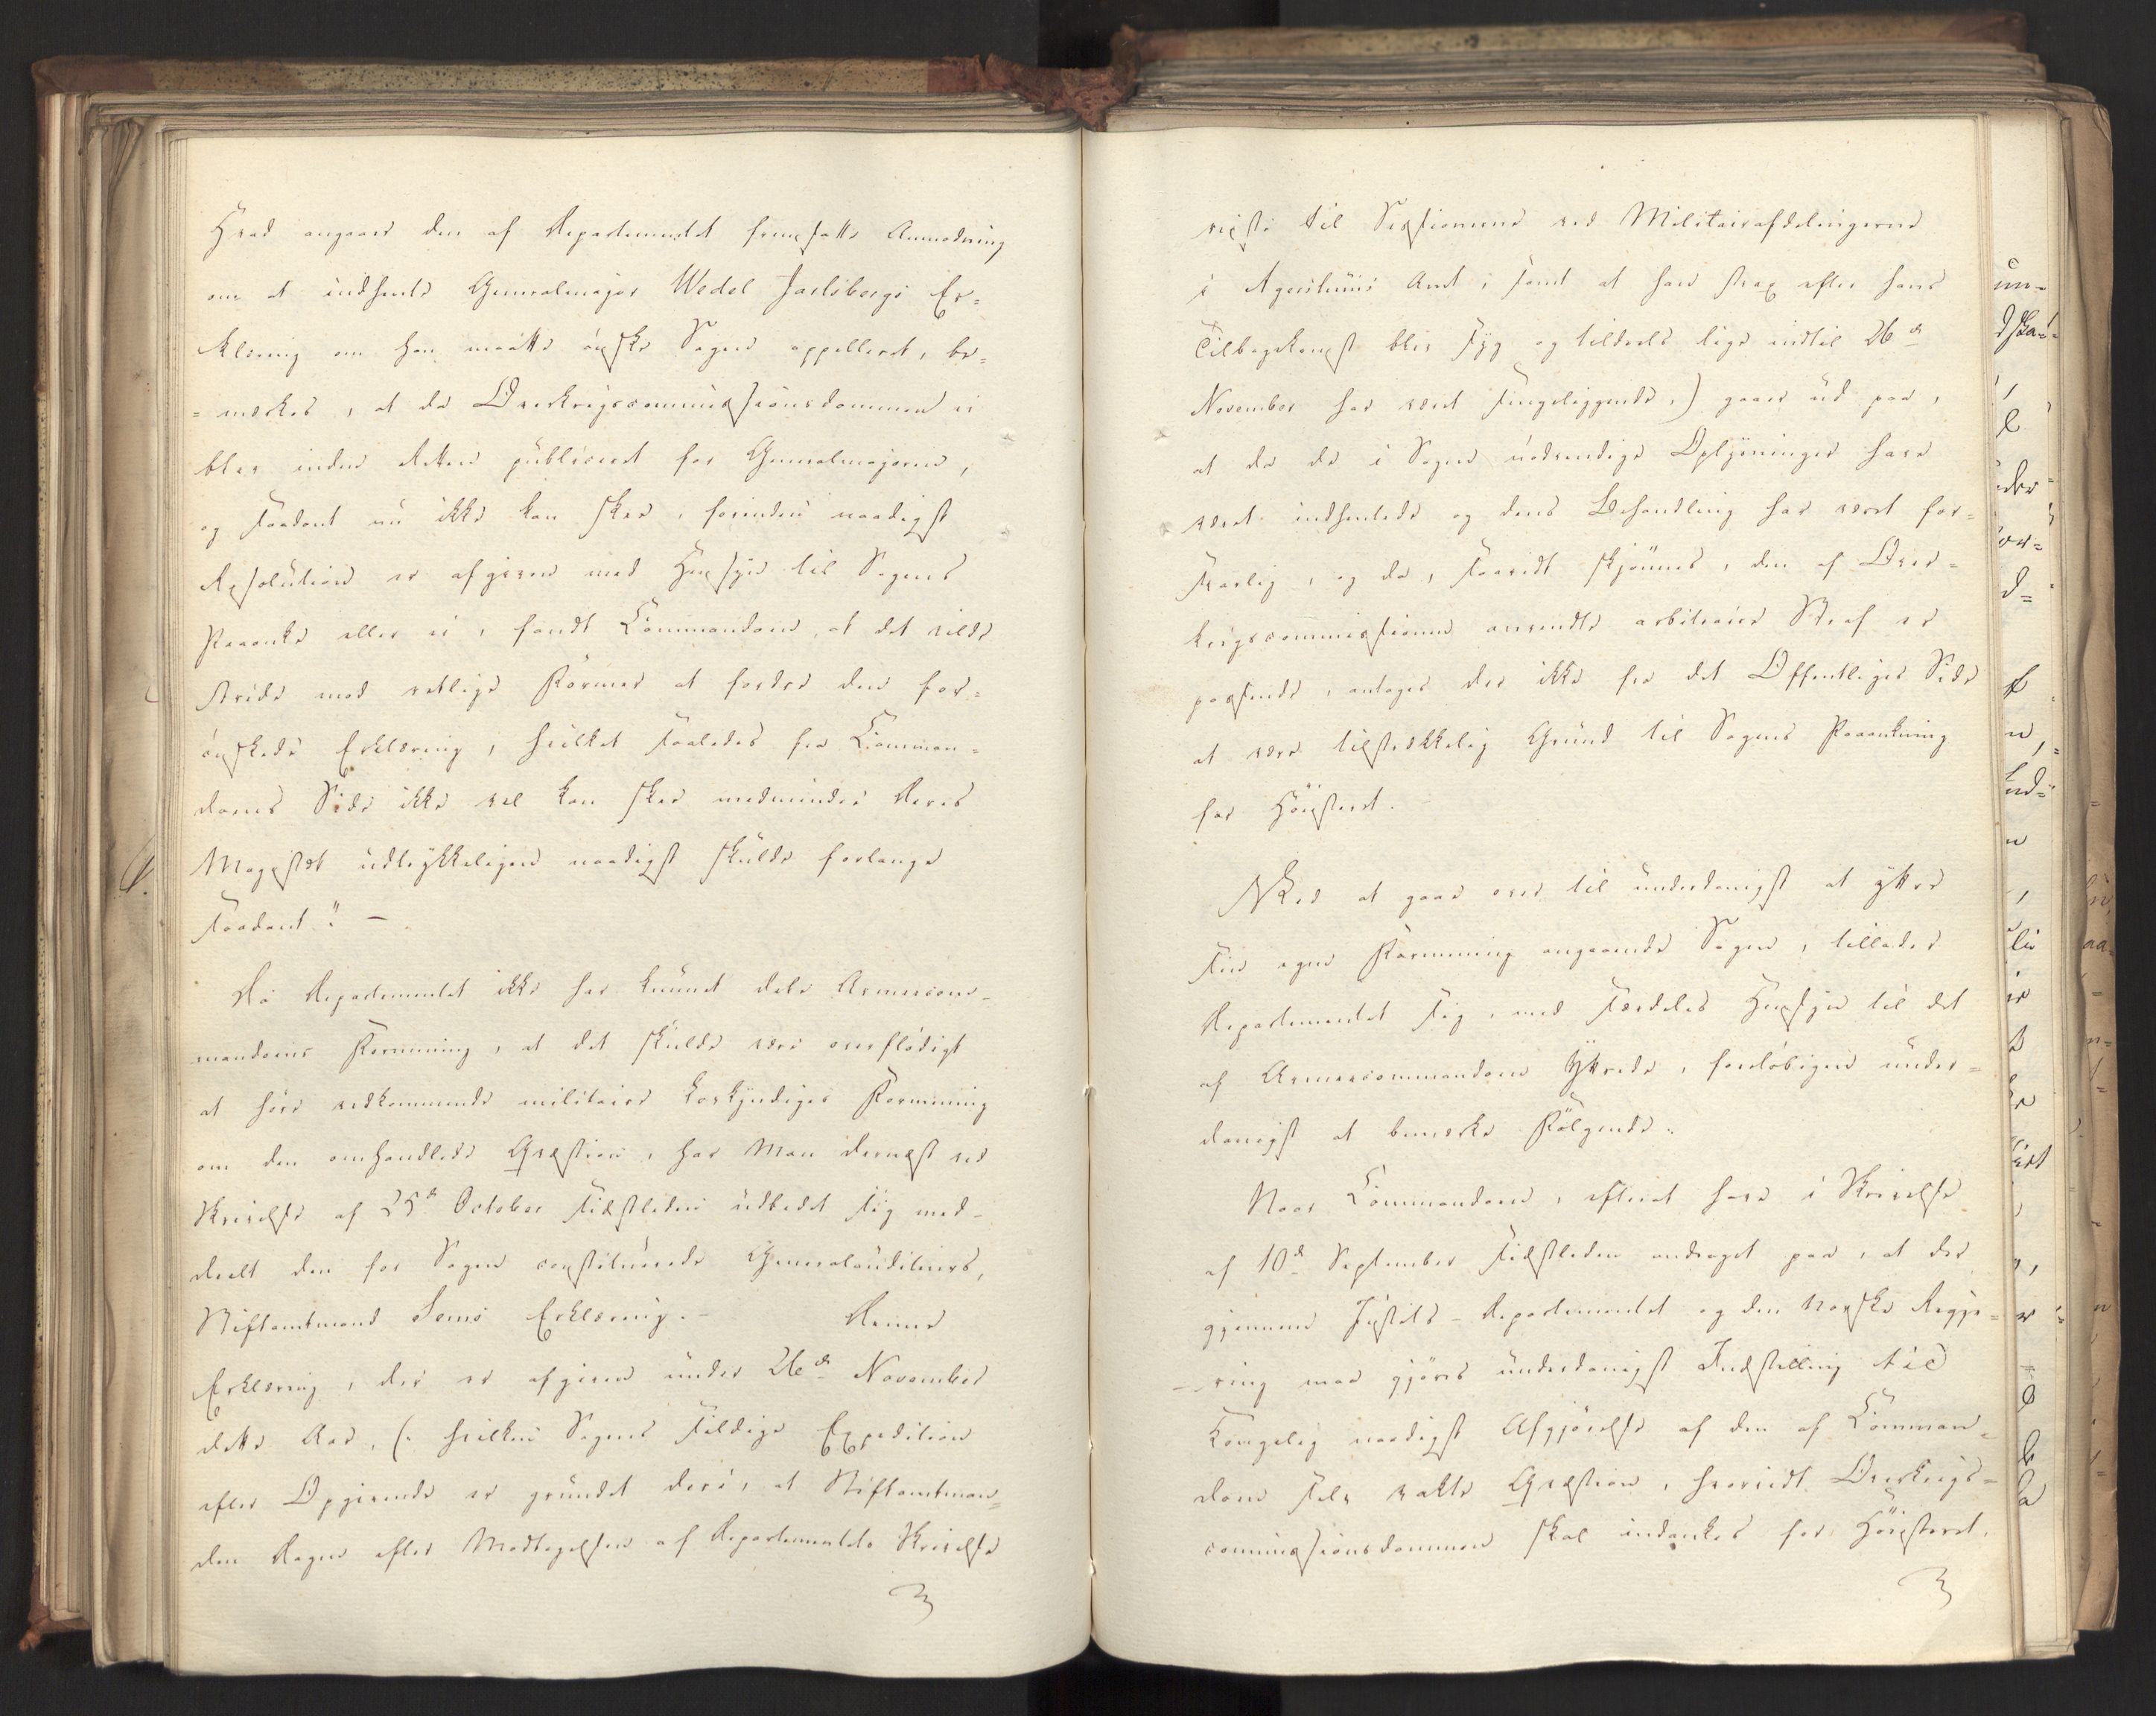 Hvad angaaer den af Departementet fremsatte Anmodning
om at indhente Generalmajor Wedel Jarlsbergs Er=
klæring om han maatte ønske Sagen appelleret, be=
=mærkes, at da Overkrigscommissionsdommen ei
blev inden Retten publiceret for Generalmajoren,
og saadant nu ikke kan skee, forinden naadigst
Resolution er afgiven med Hensyn til Sagens
Paaanke eller ei, fandt Commandoen, at det vilde
stride mod retlige Former at fordre den for=
ønskede Erklæring, hvilket saaledes fra Comman=
doens Side ikke vel kan skee medmindre Deres
Majestæt udtrykkeligen naadigst skulde forlange
saadant." –
Da Departementet ikke har kunnet dele Armeecom=
mandoens Formening, at det skulde være overflødigt
at høre vedkommende militaire Lovkyndiges Formening
om den omhandlede Qvæstion, har Man dernæst ved
Skrivelse af 25de October sidstleden udbedet sig med=
deelt den for Sagen constituerede Generalauditeurs,
Stiftamtmand Sems Erklæring. – Denne
Erklæring, der er afgiven under 26de November
dette Aar, (: hvilken Sagens sildige Expedition
efter Opgivende er grundet deri, at Stiftamtman=
den Dagen efter Modtagelsen af Departementets Skrivelse
reiste til Sessionerne ved Militairafdelingerne
i Agershuus Amt, samt at han strax efter hans
Tilbagekomst blev syg og tildeels lige indtil 26de
November har været sengeliggende,) gaaer ud paa,
at da de i Sagen nødvendige Oplysninger have
været indhentede og dens Behandling har været for=
svarlig, og da, saavidt skjønnes, den af Over=
krigscommissionen anvendte arbitraire Straf er
passende, antages der ikke fra det Offentliges Side
at være tilstrækkelig Grund til Sagens Paaankning
for Høiesteret.
Ved at gaae over til underdanigst at yttre
sin egen Formening angaaende Sagen, tillader
Departementet sig, med særdeles Hensyn til det
af Armeecommandoen Yttrede, foreløbigen under=
danigst at bemærke Følgende:
Naar Commandoen, efterat have i Skrivelse
af 10de September sidstleden andraget paa, at der
gjennem Justits-Departementet og den Norske Regje=
=ring maa gjøres underdanigst Indstilling til
Kongelig naadigst Afgjørelse af den af Comman=
doen selv vakte Qvæstion, hvorvidt Overkrigs=
commissionsdommen skal indankes for Høiesteret,